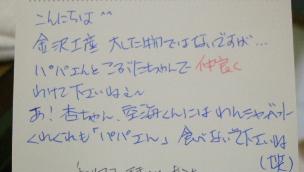 こんにちは ^^
金沢土産 大した物ではないですが…
パパえんとこぶたちゃんで 仲良く
わけて下さいね〜
あ！杏ちゃん、空海くんには わんキャベツ
くれぐれも「パパえん」食べないで下さいね
(笑)